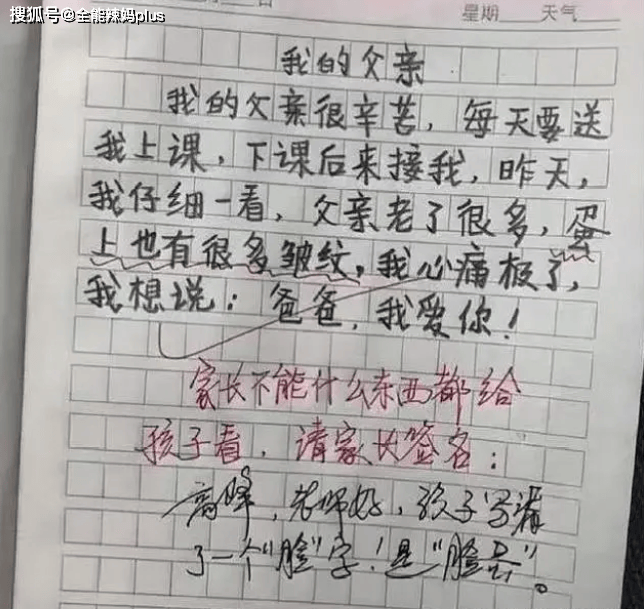 搜狐号@全能辣妈plus
星期 天气
我的父亲
我的父亲很辛苦，每天要送
我上课，下课后来接我，昨天，
我仔细一看，父亲老了很多，蛋
上也有很多皱纹，我心痛极了，
我想说：爸爸，我爱你！
家长不能什么东西都给
孩子看，请家长签名：
高峰，老师好，孩子写漏
了一个“脸”字！是“脸蛋”。